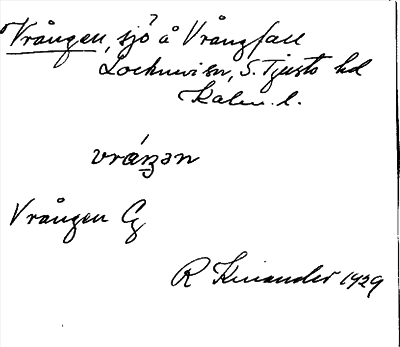 Vrången, sjö å Vrångfall
Locknevi sn, S. Tjusts hd
Kalm. l.
vráŋən
Vrången Cg
R Kinander 1929